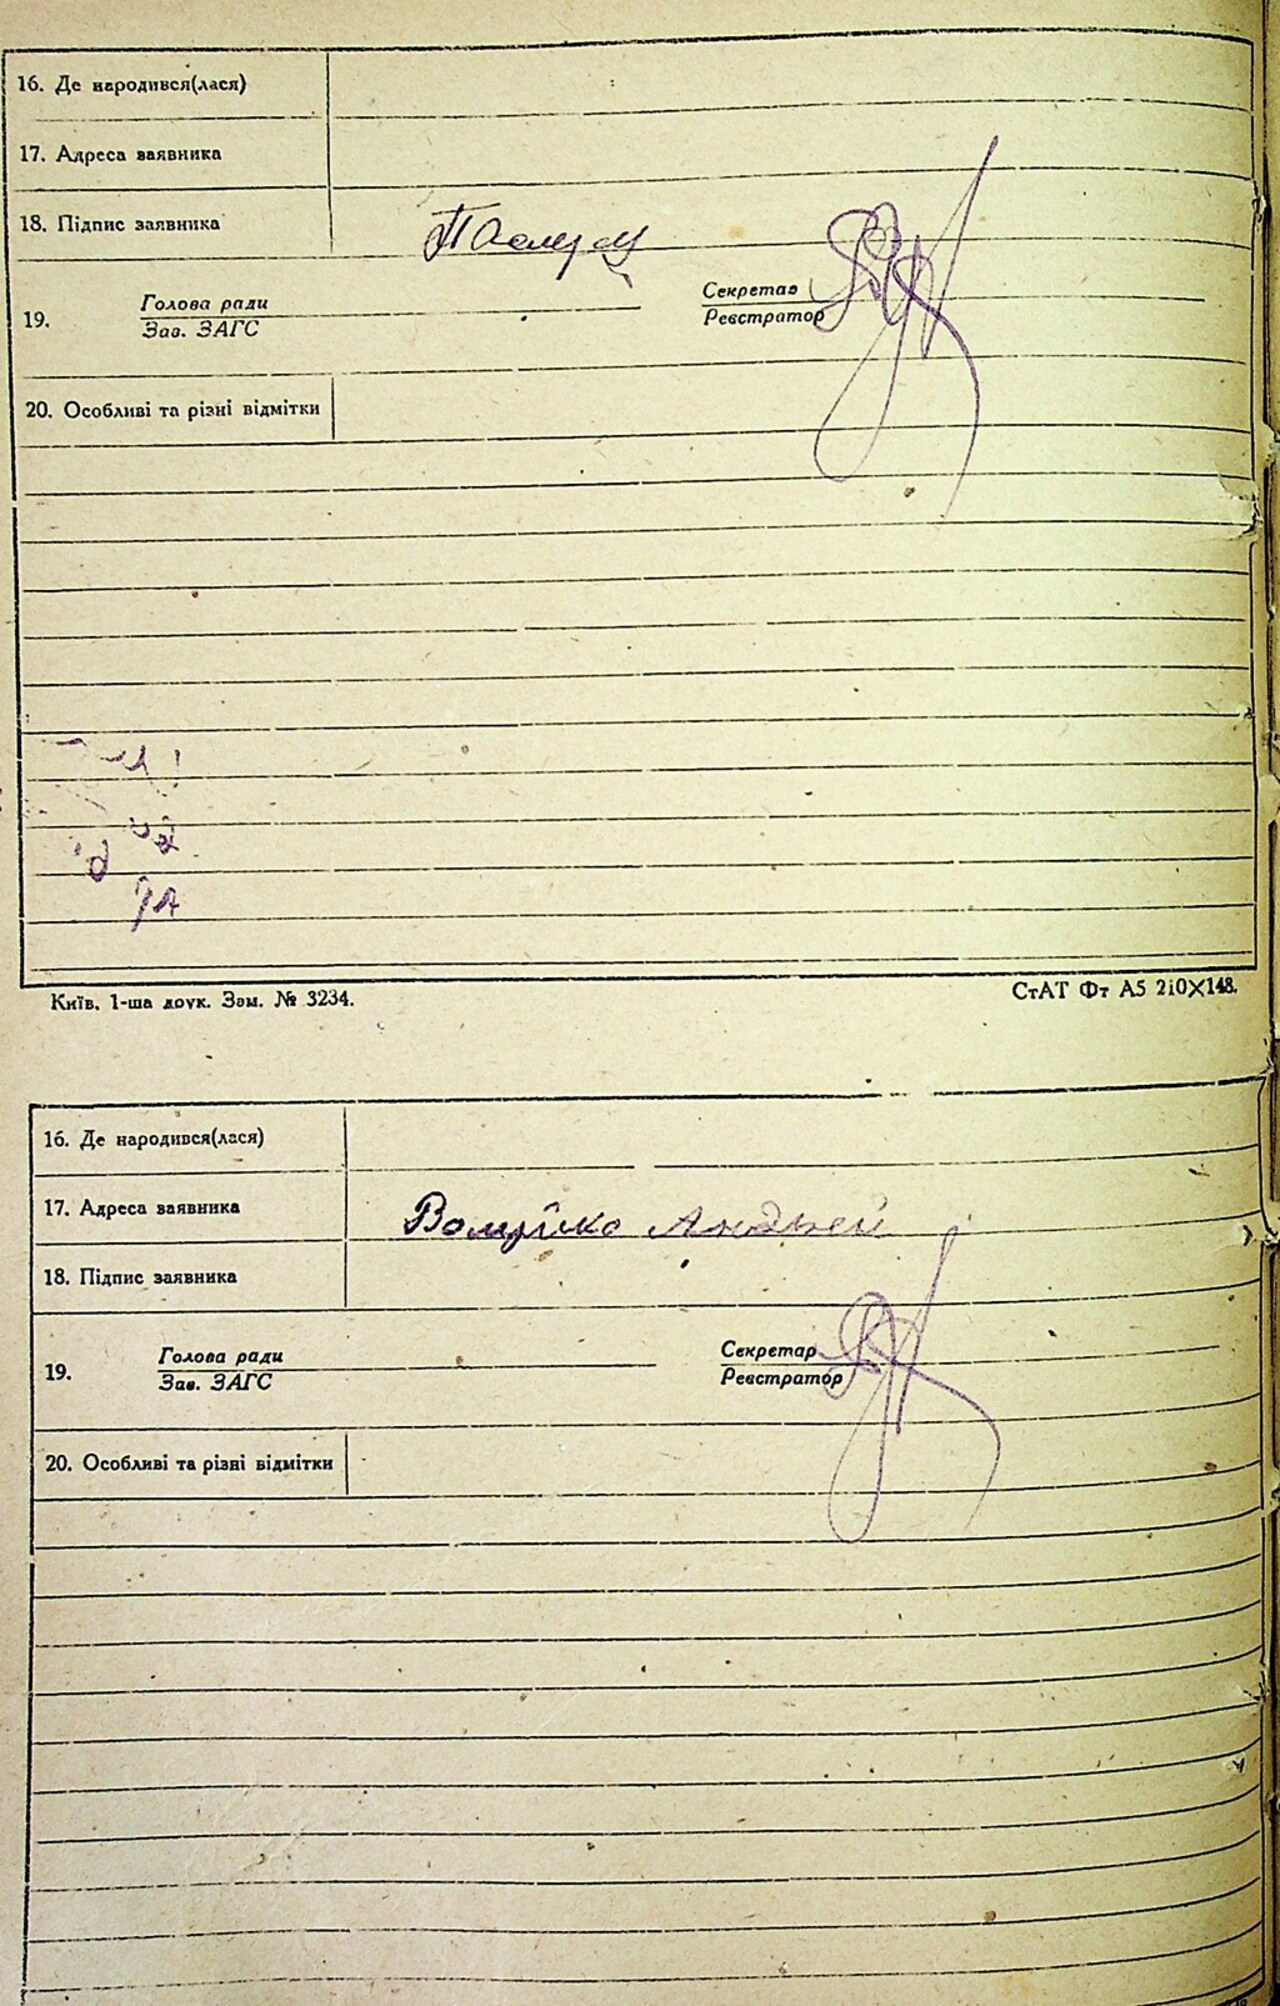 16. Де народився(лася)
17. Адреса заявника
18. Підпис заявника
Голова ради
Секретар
19.
Зав. ЗАГС
Реєстратор
20. Особливі та різні відмітки
Київ. 1-ша друк. Зам. № 3234.
СтАТ Фт А5 210X148.
16. Де народився(лася)
17. Адреса заявника
Андрей
18. Підпис заявника
Голова ради
Секретар
19.
Зав. ЗАГС
Реєстратор
20. Особливі та різні відмітки